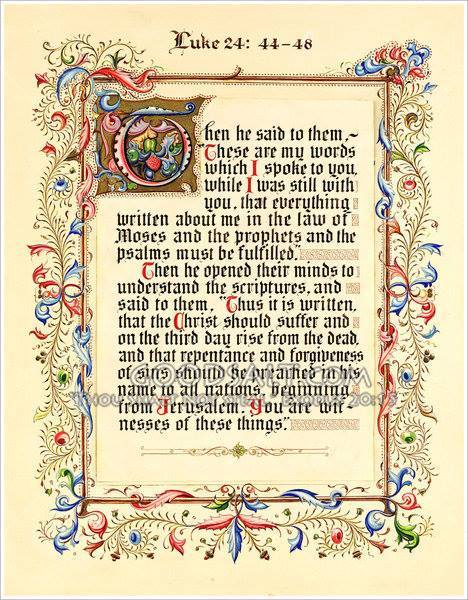 Luke 24: 44-48
Then he said to them,~
"These are my words
which I spoke to you,
while I was still with
you, that everything
written about me in the law of
Moses and the prophets and the
psalms must be fulfilled."
Then he opened their minds to
understand the scriptures, and
said to them, "Thus it is written,
that the Christ should suffer and
on the third day rise from the dead,
and that repentance and forgiveness
of sins should be preached in his
name to all nations, beginning
from Jerusalem. You are wit-
nesses of these things."